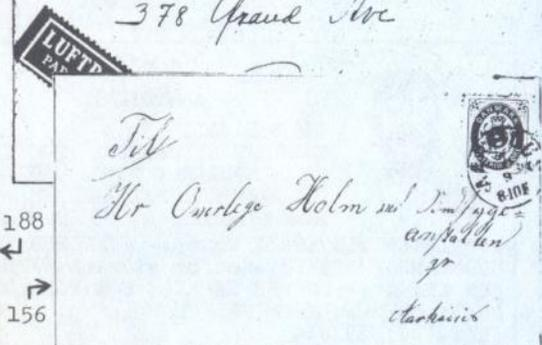 378 Grand Ave
LUFTP
PAR
Til
Hr Overlege Holm ved Sindsyge=
anstalten
pr
Aarhuus
DANMARK
8-10E
188
156